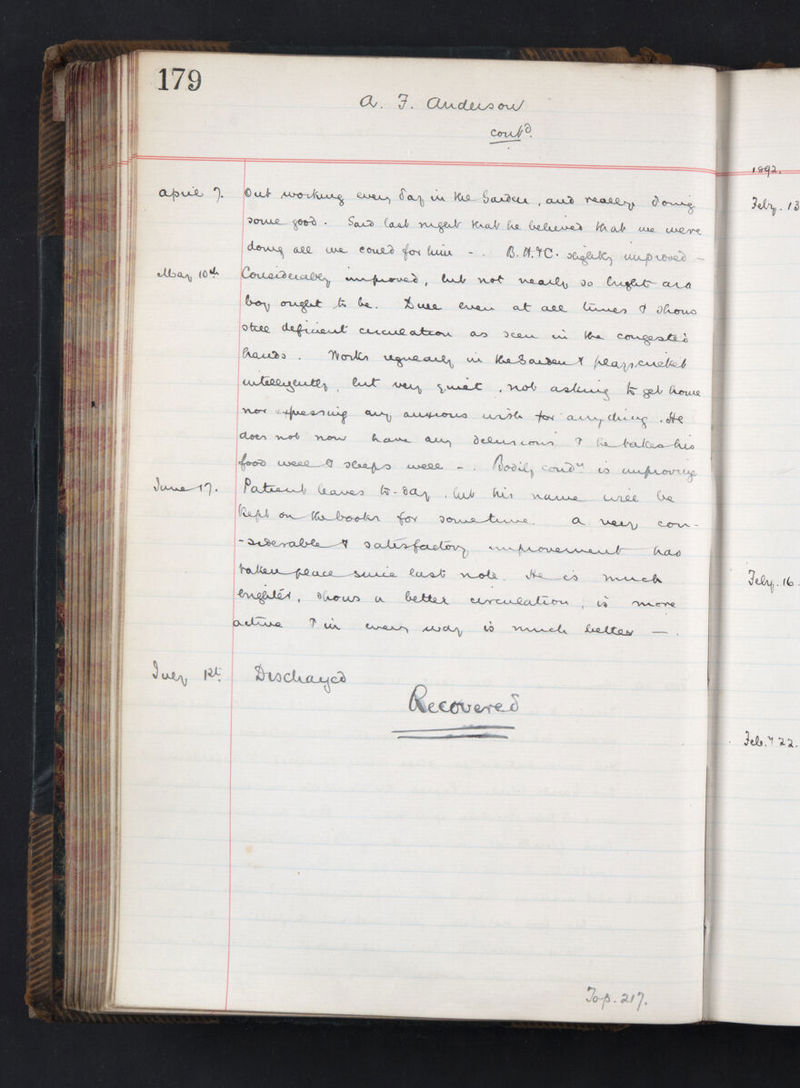 179
A. F. Anderson
contd.
April 7. Out working every day in the Garden, and really doing
some good. Said last night that he believed that we were
doing all we could for him - . B. H. & C. slightly improved -
May 10th Considerably improved, but not nearly so bright as a
boy ought to be. Dull even at all times & shows
still deficient circulation as seen in the congested
hands. Works regularly in the Garden & plays cricket
intelligently, but very quiet, not asking to get home
nor expressing any anxious wish for anything. He
does not now have any delusions & he takes his
food well & sleeps well - . Bodily condn. is improving
June 17. Patient leaves to-day, but his name will be
kept on the books for some time. A very con-
-siderable & satisfactory improvement has
taken place since last note. He is much
brighter, shows a better circulation, is more
active & in every way is much better - .
July 1st. Discharged
Recovered
To p. 217.
1892.
Feby. 13
Feby. 16.
Feb.y 22.